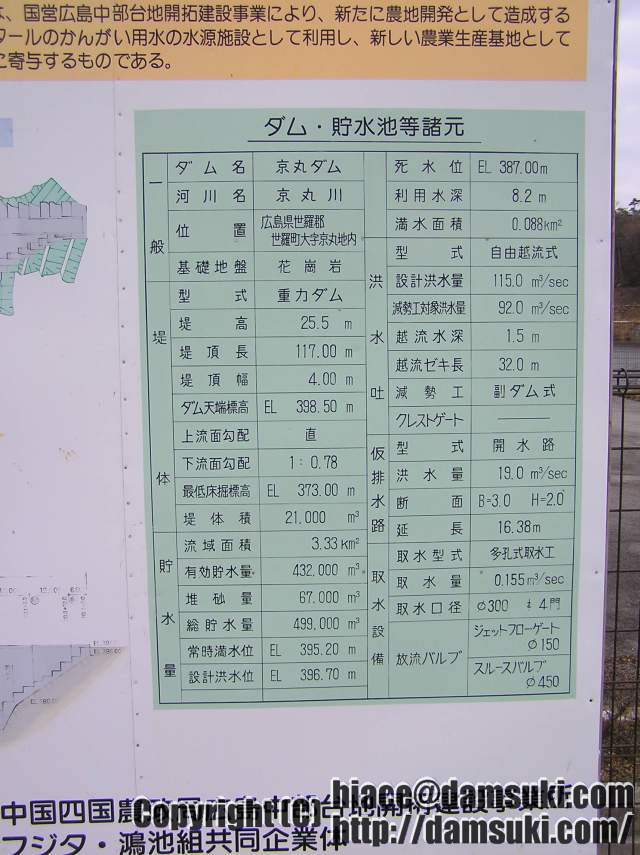 、国営広島中部台地開拓建設事業により、新たに農地開発として造成する
タールのかんがい用水の水源施設として利用し、新しい農業生産基地として
に寄与するものである。
ダム・貯水池等諸元
一般
ダム名 京丸ダム
河川名 京丸川
位置 広島県世羅郡
世羅町大字京丸地内
基礎地盤 花崗岩
堤体
型式 重力ダム
堤高 25.5 m
堤頂長 117.00 m
堤頂幅 4.00 m
ダム天端標高 EL 398.50 m
上流面勾配 直
下流面勾配 1:0.78
最低床掘標高 EL 373.00 m
堤体積 21.000 m³
貯水量
流域面積 3.33 km²
有効貯水量 432.000 m³
堆砂量 67.000 m³
総貯水量 499.000 m³
常時満水位 EL 395.20 m
設計洪水位 EL 396.70 m
死水位 EL 387.00 m
利用水深 8.2 m
満水面積 0.088 km²
洪水吐
型式 自由越流式
設計洪水量 115.0 m³/sec
減勢工対象洪水量 92.0 m³/sec
越流水深 1.5 m
越流ゼキ長 32.0 m
減勢工 副ダム式
クレストゲート ―――
仮排水路
型式 開水路
洪水量 19.0 m³/sec
断面 B=3.0 H=2.0
延長 16.38 m
取水設備
取水型式 多孔式取水工
取水量 0.155 m³/sec
取水口径 ø300 4門
放流バルブ ジェットフローゲート
ø150
スルースバルブ
ø450
中国四国農 台地開拓建設事業所
フジタ・鴻池組共同企業体
Copyright(C) hiace@damsuki.com
http://damsuki.com/